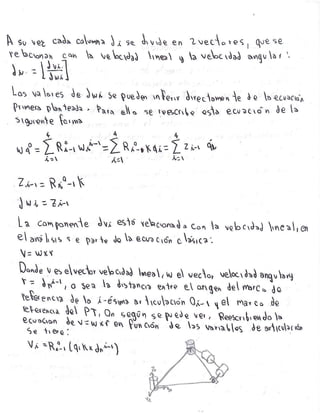 A su vez cada columna Ji se divide en 2 vectores, que se
relacionan con la velocidad lineal y la velocidad angular:
Jw = [Jvi / Jwi]
Los valores de Jwi se pueden inferir directamente de la ecuación
Primera planteada. Para ello se reescribe esta ecuación de la
siguiente forma
Zi-1 = R⁰i-1 K
Jwi = Zi-1
La componente Jvi está relacionada con la velocidad lineal, en
el análisis se parte de la ecuación clásica:
V = wxr
Donde V es el vector velocidad lineal, w el vector velocidad angular y
o sea la distancia entre el origen del marco de
referencia de la i-ésima articulación Oi-1 y el marco de
referencia del PT, On según se puede ver, Reescribiendo la
ecuación de V=wxr en función de las variables de articulación
se tiene:
Vi = R⁰i-1 (qi K x dn i-1)